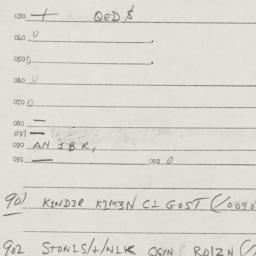 030 + QED $
040 0
050 0
060 0
070 0
080 —
081 —
090 AN 1 B R,
091 — 092 0
901 K1ND3R K1M3N C1 GOST (/009
902 STON1S/+/N1K QSYN RD1ZN (/